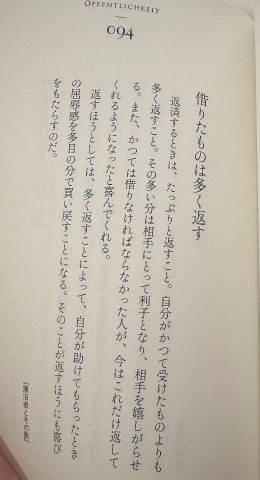 ÖFFENTLICHKEIT
094
借りたものは多く返す
返済するときは、たっぷりと返すこと。自分がかつて受けたものよりも
多く返すこと。その多い分は相手にとって利子となり、相手を嬉しがらせ
る。また、かつては借りなければならなかった人が、今はこれだけ返して
くれるようになったと喜んでくれる。
返すほうとしては、多く返すことによって、自分が助けてもらったとき
の屈辱感を多目の分で買い戻すことになる。そのことが返すほうにも喜び
をもたらすのだ。
『漂泊者とその影』